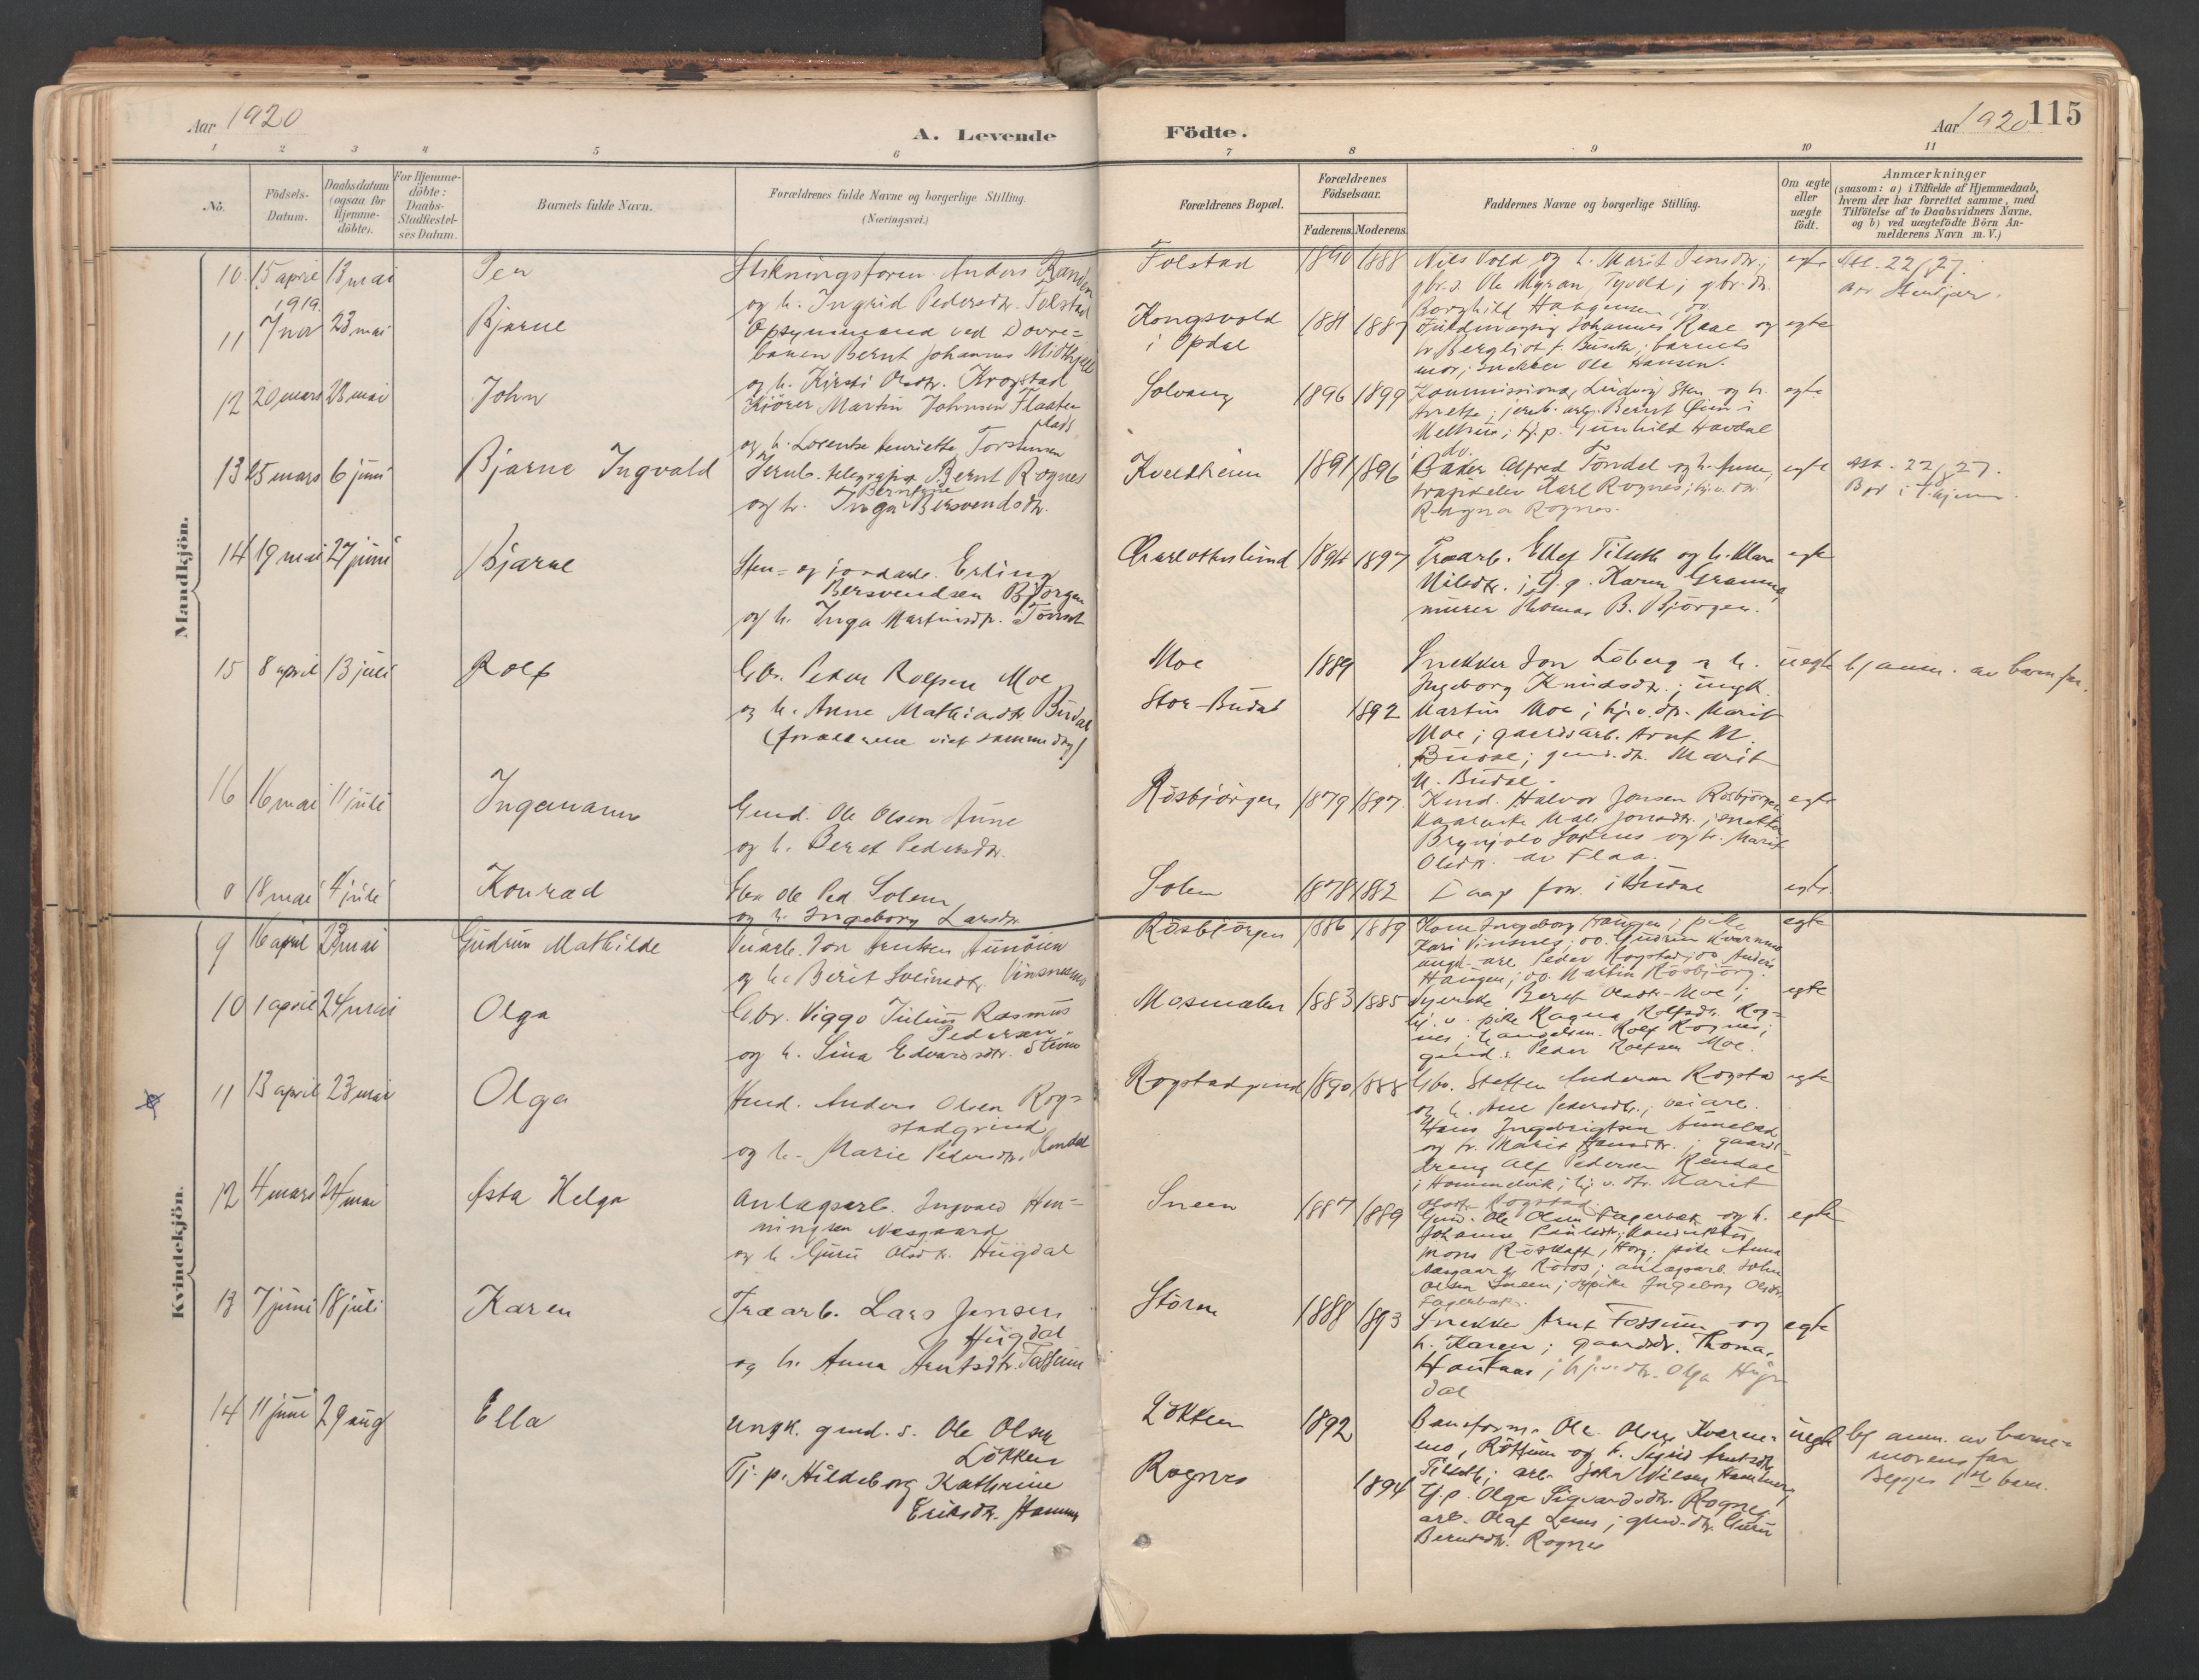 Aar 1920
A. Levende
Födte.
Aar 1920
115
1 2 3 4 5 6 7 8 9 10 11
No.
Födsels-
Datum.
Daabsdatum
(ogsaa for
Hjemme-
döbte).
For Hjemme-
döbte:
Daabs-
Stadfæstel-
ses Datum.
Barnets fulde Navn.
Forældrenes fulde Navne og borgerlige Stilling.
(Næringsvei.)
Forældrenes Bopæl.
Forældrenes
Födselsaar.
Faderens. Moderens.
Faddernes Navne og borgerlige Stilling.
Om ægte
eller
uægte
födt.
Anmærkninger
(saasom: a) i Tilfælde af Hjemmedaab,
hvem der har forrettet samme, med
Tilföielse af to Daabsvidners Navne,
og b) ved uægtefödte Börn An-
melderens Navn m. V.)
Mandkjön.
10 15 april 13 mai Per
Stikningsforen. Anders
og h. Ingrid Pedersdr. Folstad
Folstad 1890 1888
Nils Vold og h. Marit Jensdr.;
gbr.s. Ole Myran, ; gbr. dr.
Borghild Haagensen, do.
egte
Att. 22/8 27.
Bor Stenkjær.
11 1919 7 nov 23 mai Bjarne
Opsynsmand ved Dovre=
banen Bernt Johannes
og h. Kirsti Olsdtr. Krogstad
Kongsvold
i Opdal
1881 1887
Johannes Raae og
h. Bergliot f. ; barnets
mor; snekker Ole Hansen.
egte
12 20 mars 23 mai John
Kjörer Martin Johnsen Flaaten
plads
og h. Lorentse Henriette Torstensen
Solvang 1896 1899
Kommissionær Ludvig Sten og h.
Anette; jernb. arb. Bernt Öien i
Melhus; tj. p. Gunhild Havdal
i do.
egte
13 25 mars 6 juni Bjarne Ingvald
Jernb. telegrafist Bernt Rognes
og h. Inga Berntine Bersvendsdr.
Kveldheim 1891 1896
Baker Alfred Tondel og h. Anne,
Karl Rognes; hj.v. dr.
Ragna Rognes.
egte
att. 22/8 27.
Bor i T.hjem.
14 19 mai 27 juni Bjarne
Sten- og jordarb. Erling
Bersvendsen Bjørgen
og h. Inga Martinsdr.
Charlottenlund 1894 1897
Træarb. Ellef Tilseth og h. Klara
Nilsdtr.; tj. p. Karen
murer Thomas B. Bjørgen.
egte
15 8 april 13 juli Rolf
Gbr. Peder Rolfsen Moe
og h. Anne Mathiasdtr Budal
(forældrene viet samme dag)
Moe 1889
Stor-Budal 1892
Snekker Jon Löberg og h.
Ingeborg Knudsdr.; ungk.
Martin Moe; hj.v.dtr. Marit
Moe; gaardsarb. Arnt M.
Budal; gmd. dr. Marit
M. Budal.
uegte
b) anm. av barnefar.
16 16 mai 11 juli Ingemann
Gmd. Ole Olsen Aune
og h. Beret Pedersdr.
Rösbjörgen 1879 1897
Kmd. Halvor Jonsen Rösbjørgen
Jonsdtr.; snekker
Brynjolv og h. Marit
Olsdtr. av Flaa.
egte
0 18 mai 4 juli Konrad
Gbr Ole Ped. Solem
og h. Ingeborg Larsdtr
Solem 1878 1882
I aap for. i Budal
egte
Kvindekjön.
9 16 april 23 mai Gudrun Mathilde
Veiarb. Jon Arntsen Aunöien
og h. Berit Sveinsdtr. Vinsnesmo
Rösbjörgen 1886 1889
Kone Ingeborg Haugen; pike
Kari Vinsnes; do. Gudrun Kvernmo
ungk. arb. Peder Rogstad; do Anders
Haugen; do. Martin Rösbjörg.
egte
10 1 april 24 mai Olga
Gbr. Viggo Julius Rasmus
Pedersen
og h. Lina Edvardsdtr.
Mosmælen 1883 1885
Syerske Beret Olsdtr. Moe;
hj. v. pike Ragna Rolfsdr. Rog-
nes; handelsm. Rolf Rognes;
gmd. s. Peder Rolfsen Moe.
egte
11 13 april 23 mai Olga
Hmd. Anders Olsen Rog=
stadgrind
og h. Marie Pedersdtr. Kendal
Rogstadgrind 1890 1888
Gbr. Steffen Andersen Rogstad
og h. Ane Pedersdtr.; veiarb.
Hans Ingebrigtsen
og h. Marit Hansdtr.; gaards-
dreng Alf Pedersen Kendal
i Hommelvik; hj. v. dtr. Marit
Olsdtr. Rogstad
egte
12 4 mars 24 mai Asta Helga
Anlægsarb. Ingvald Hen=
ningsen Næsgaard
og h. Guru Olsdtr. Hugdal
Sneen 1887 1889
Gmd. Ole Olsen Fagerbæk og h.
Johanna Paulsdtr; Konduktör
Mons Röskaft, Horg; pike Anna
Næsgaard, Röros; anlægsarb. John
Olsen Sneen; pike Ingeborg Olsdtr
Fagerbæk.
egte
13 7 juni 18 juli Karen
Træarb. Lars Jensen
Hugdal
og h. Anna Arntsdtr. Fossum
Stören 1888 1893
Snekker Arnt Fossum og
h. Karen; gaardbr. Thomas
Haukaas; hj.v.dtr. Olga Hug-
dal
egte
14 11 juni 29 aug Ella
Ungk. gmd. s. Ole Olsen
Løkken
Tj. p. Hildeborg Kathrine
Eriksdtr. Hammer
Løkken 1892
Rognes 1894
Baneform. Ole Olsen Kvern-
mo, Röttum og h. Sigrid Arntsdtr
Tilseth; arb. John Nilsen Hammer;
tj. p. Olga Sigvardsdtr. Rognes
arb. Olaf Lems; gmd. dtr. Guru
Berntsdtr. Rognes
uegte
b) anm. av barne-
morens far
Begges 1ste barn.